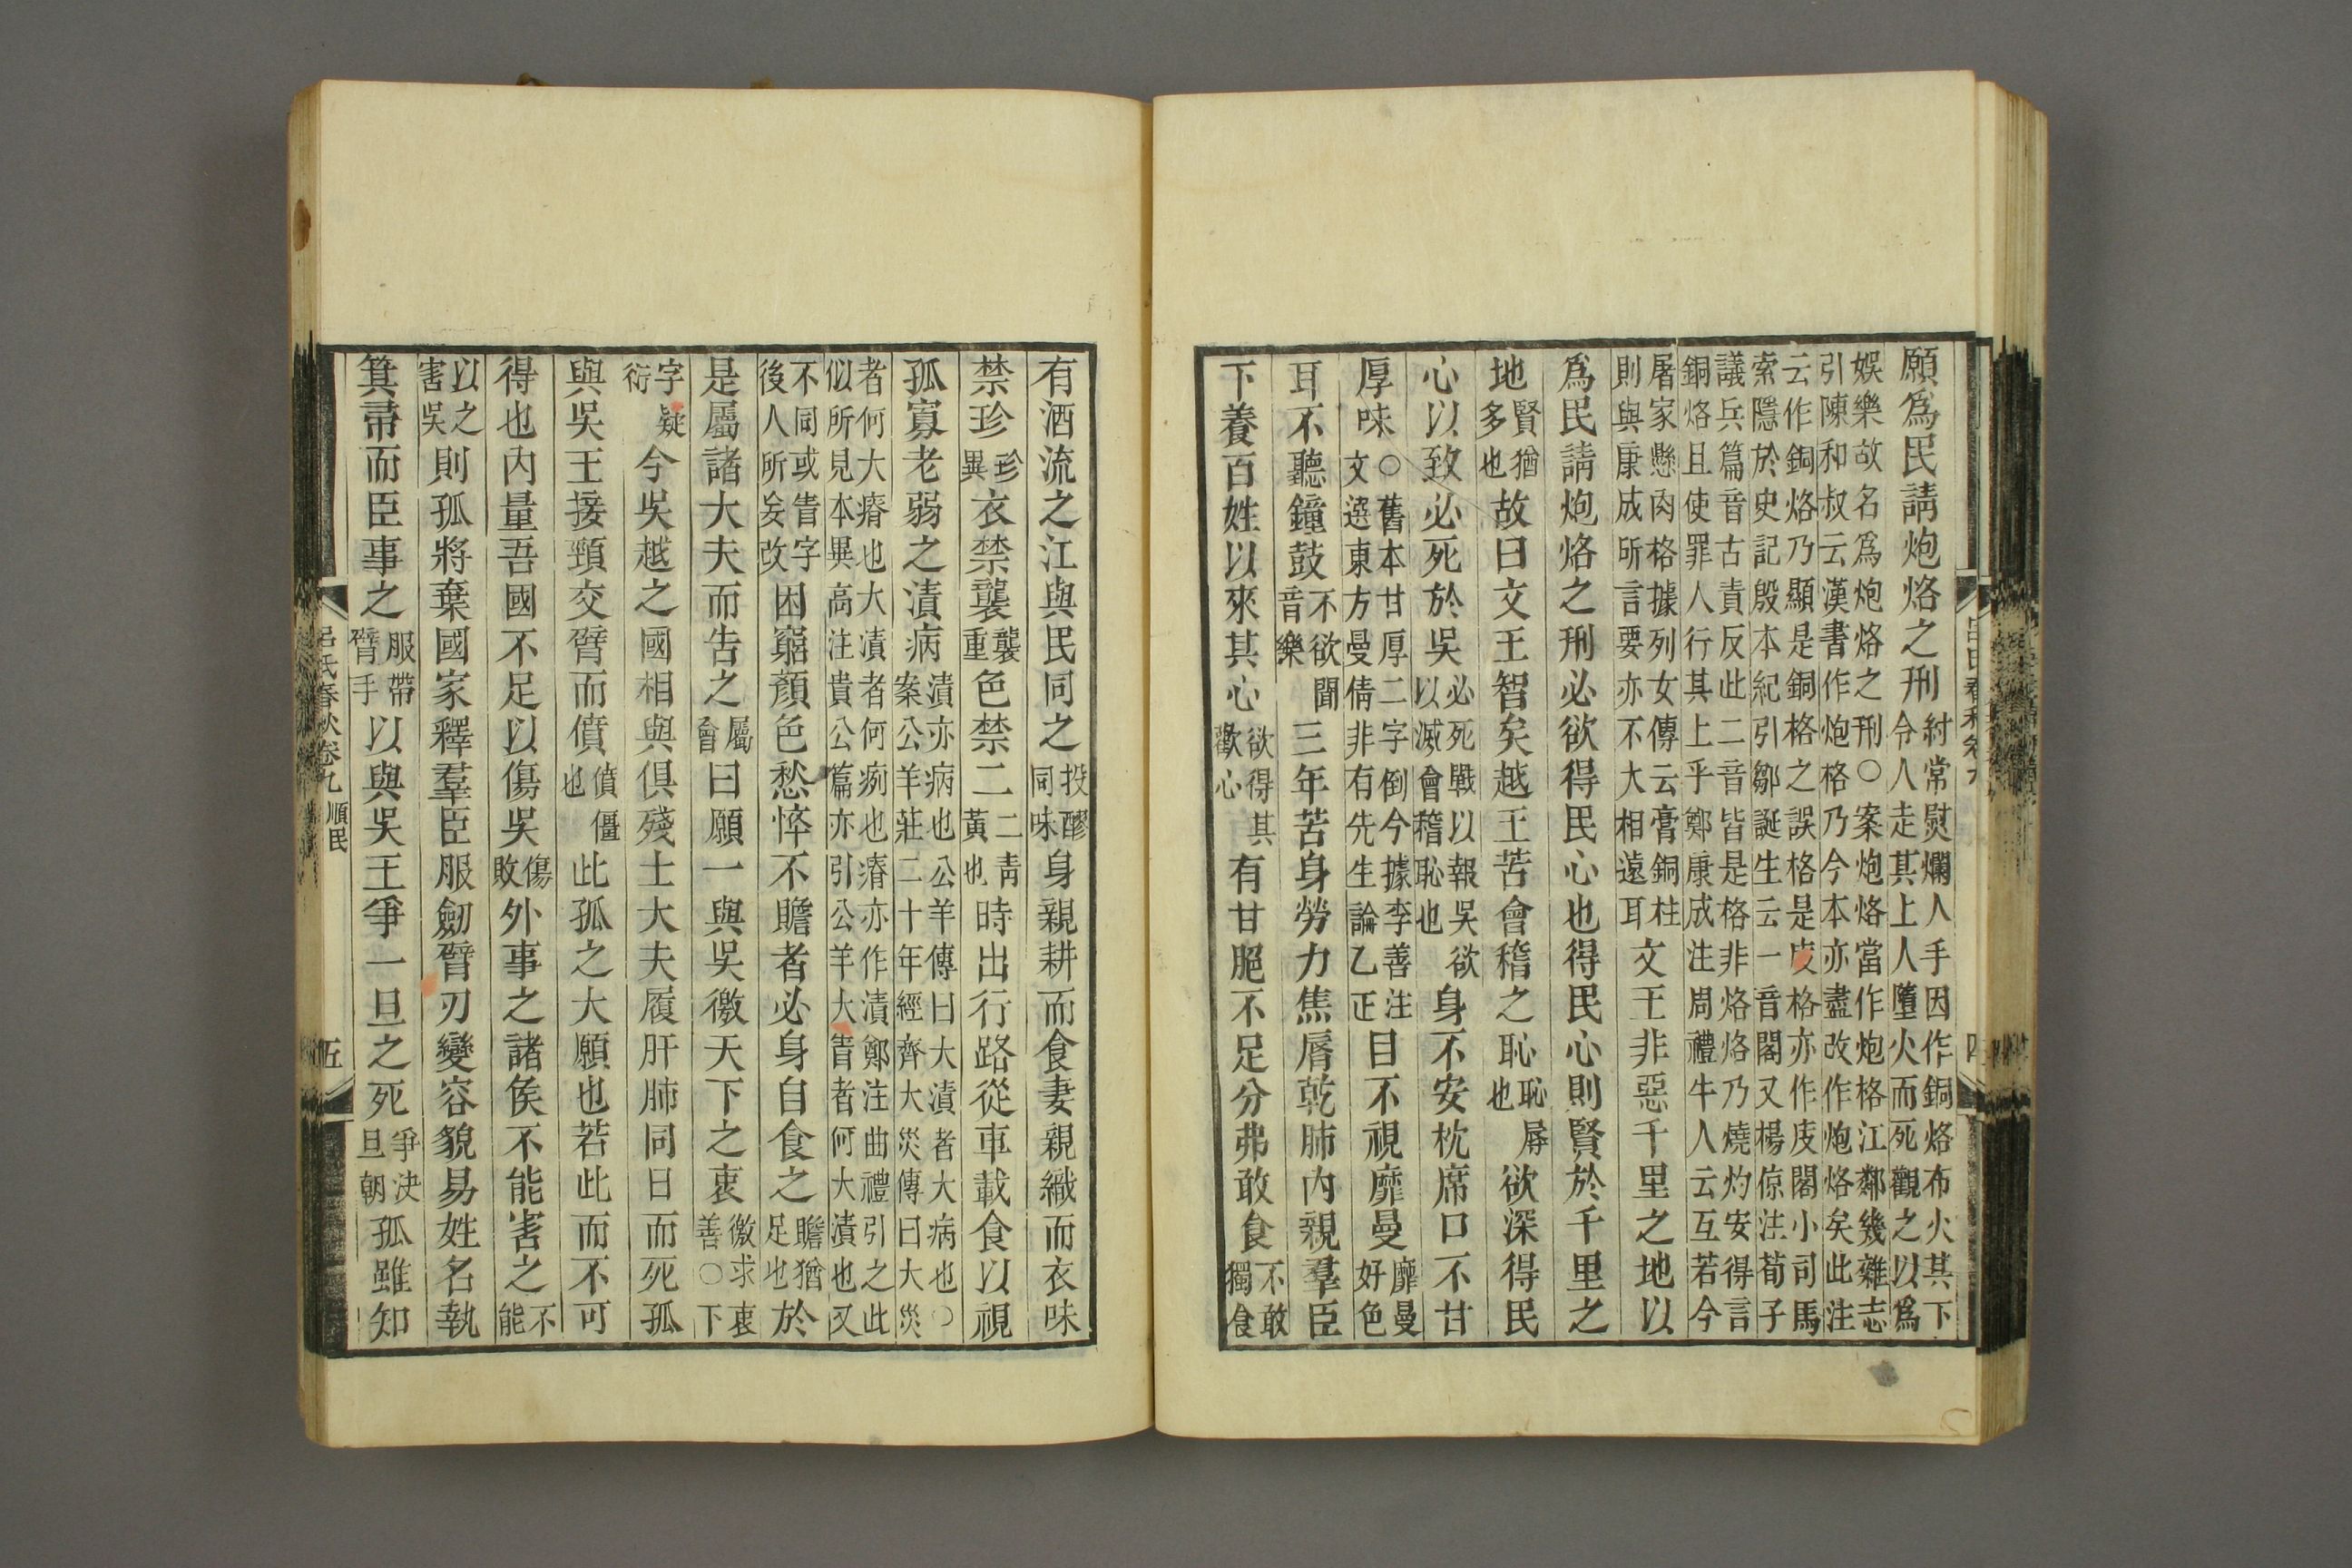 願爲民請炮烙之刑紂常熨爛人手因作銅烙布火其下令人走其上人墮火而死觀之以爲
娛樂故名爲炮烙之刑○案炮烙當作炮格江鄰幾雜志
引陳和叔云漢書作炮格乃今本亦盡改作炮烙矣此注
云作銅烙乃顯是銅格之誤格是庋格亦作庋閣小司馬
索隱於史記殷本紀引鄒誕生云一音閣又楊倞注荀子
議兵篇音古責反此二音皆是格非烙烙乃燒灼安得言
銅烙且使罪人行其上乎鄭康成注周禮牛人云互若今
屠家懸肉格據列女傳云膏銅柱則與康成所言要亦不大相遠耳文王非惡千里之地以
爲民請炮烙之刑必欲得民心也得民心則賢於千里之
地賢猶多也故曰文王智矣越王苦會稽之恥恥辱也欲深得民
心以致必死於吳必死戰以報吳欲以滅會稽恥也身不安枕席口不甘
厚味○舊本甘厚二字倒今據李善注文選東方曼倩非有先生論乙正目不視靡曼靡曼好色
耳不聽鐘鼓不欲聞音樂三年苦身勞力焦脣乾肺內親羣臣
下養百姓以來其心欲得其歡心有甘脃不足分弗敢食不敢獨食
有酒流之江與民同之投醪同味身親耕而食妻親織而衣味
禁珍珍異衣禁襲襲重色禁二二青黃也時出行路從車載食以視
孤寡老弱之漬病漬亦病也公羊傳曰大漬者大病也○案公羊莊二十年經齊大災傳曰大災
者何大瘠也大漬者何㾐也瘠亦作漬鄭注曲禮引之此
似所見本異高注貴公篇亦引公羊大眚者何大漬也又
不同或眚字後人所妄改困窮顏色愁悴不贍者必身自食之贍猶足也於
是屬諸大夫而告之屬會曰願一與吳徼天下之衷徼求衷善○下
字疑衍今吳越之國相與俱殘士大夫履肝肺同日而死孤
與吳王接頸交臂而僨僨僵也此孤之大願也若此而不可
得也內量吾國不足以傷吳傷敗外事之諸侯不能害之不能
以之害吳則孤將棄國家釋羣臣服劒臂刃變容貌易姓名執
箕帚而臣事之服帶臂手以與吳王爭一旦之死爭決旦朝孤雖知
呂氏春秋卷九 順民 五